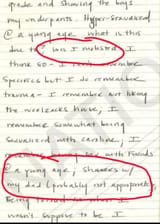 grade and showing the boys
my underpants. Hyper-sexualized
@ a young age. what is this
due to? Was I molested? I
think so - I can't remember
specifics but I do remember
trauma - I remember not liking
the house, I
remember somewhat being
sexualized with caroline, I
with friends
@ a young age; showers w/
my dad (probably not appropriate).
Being
suppose to be. I